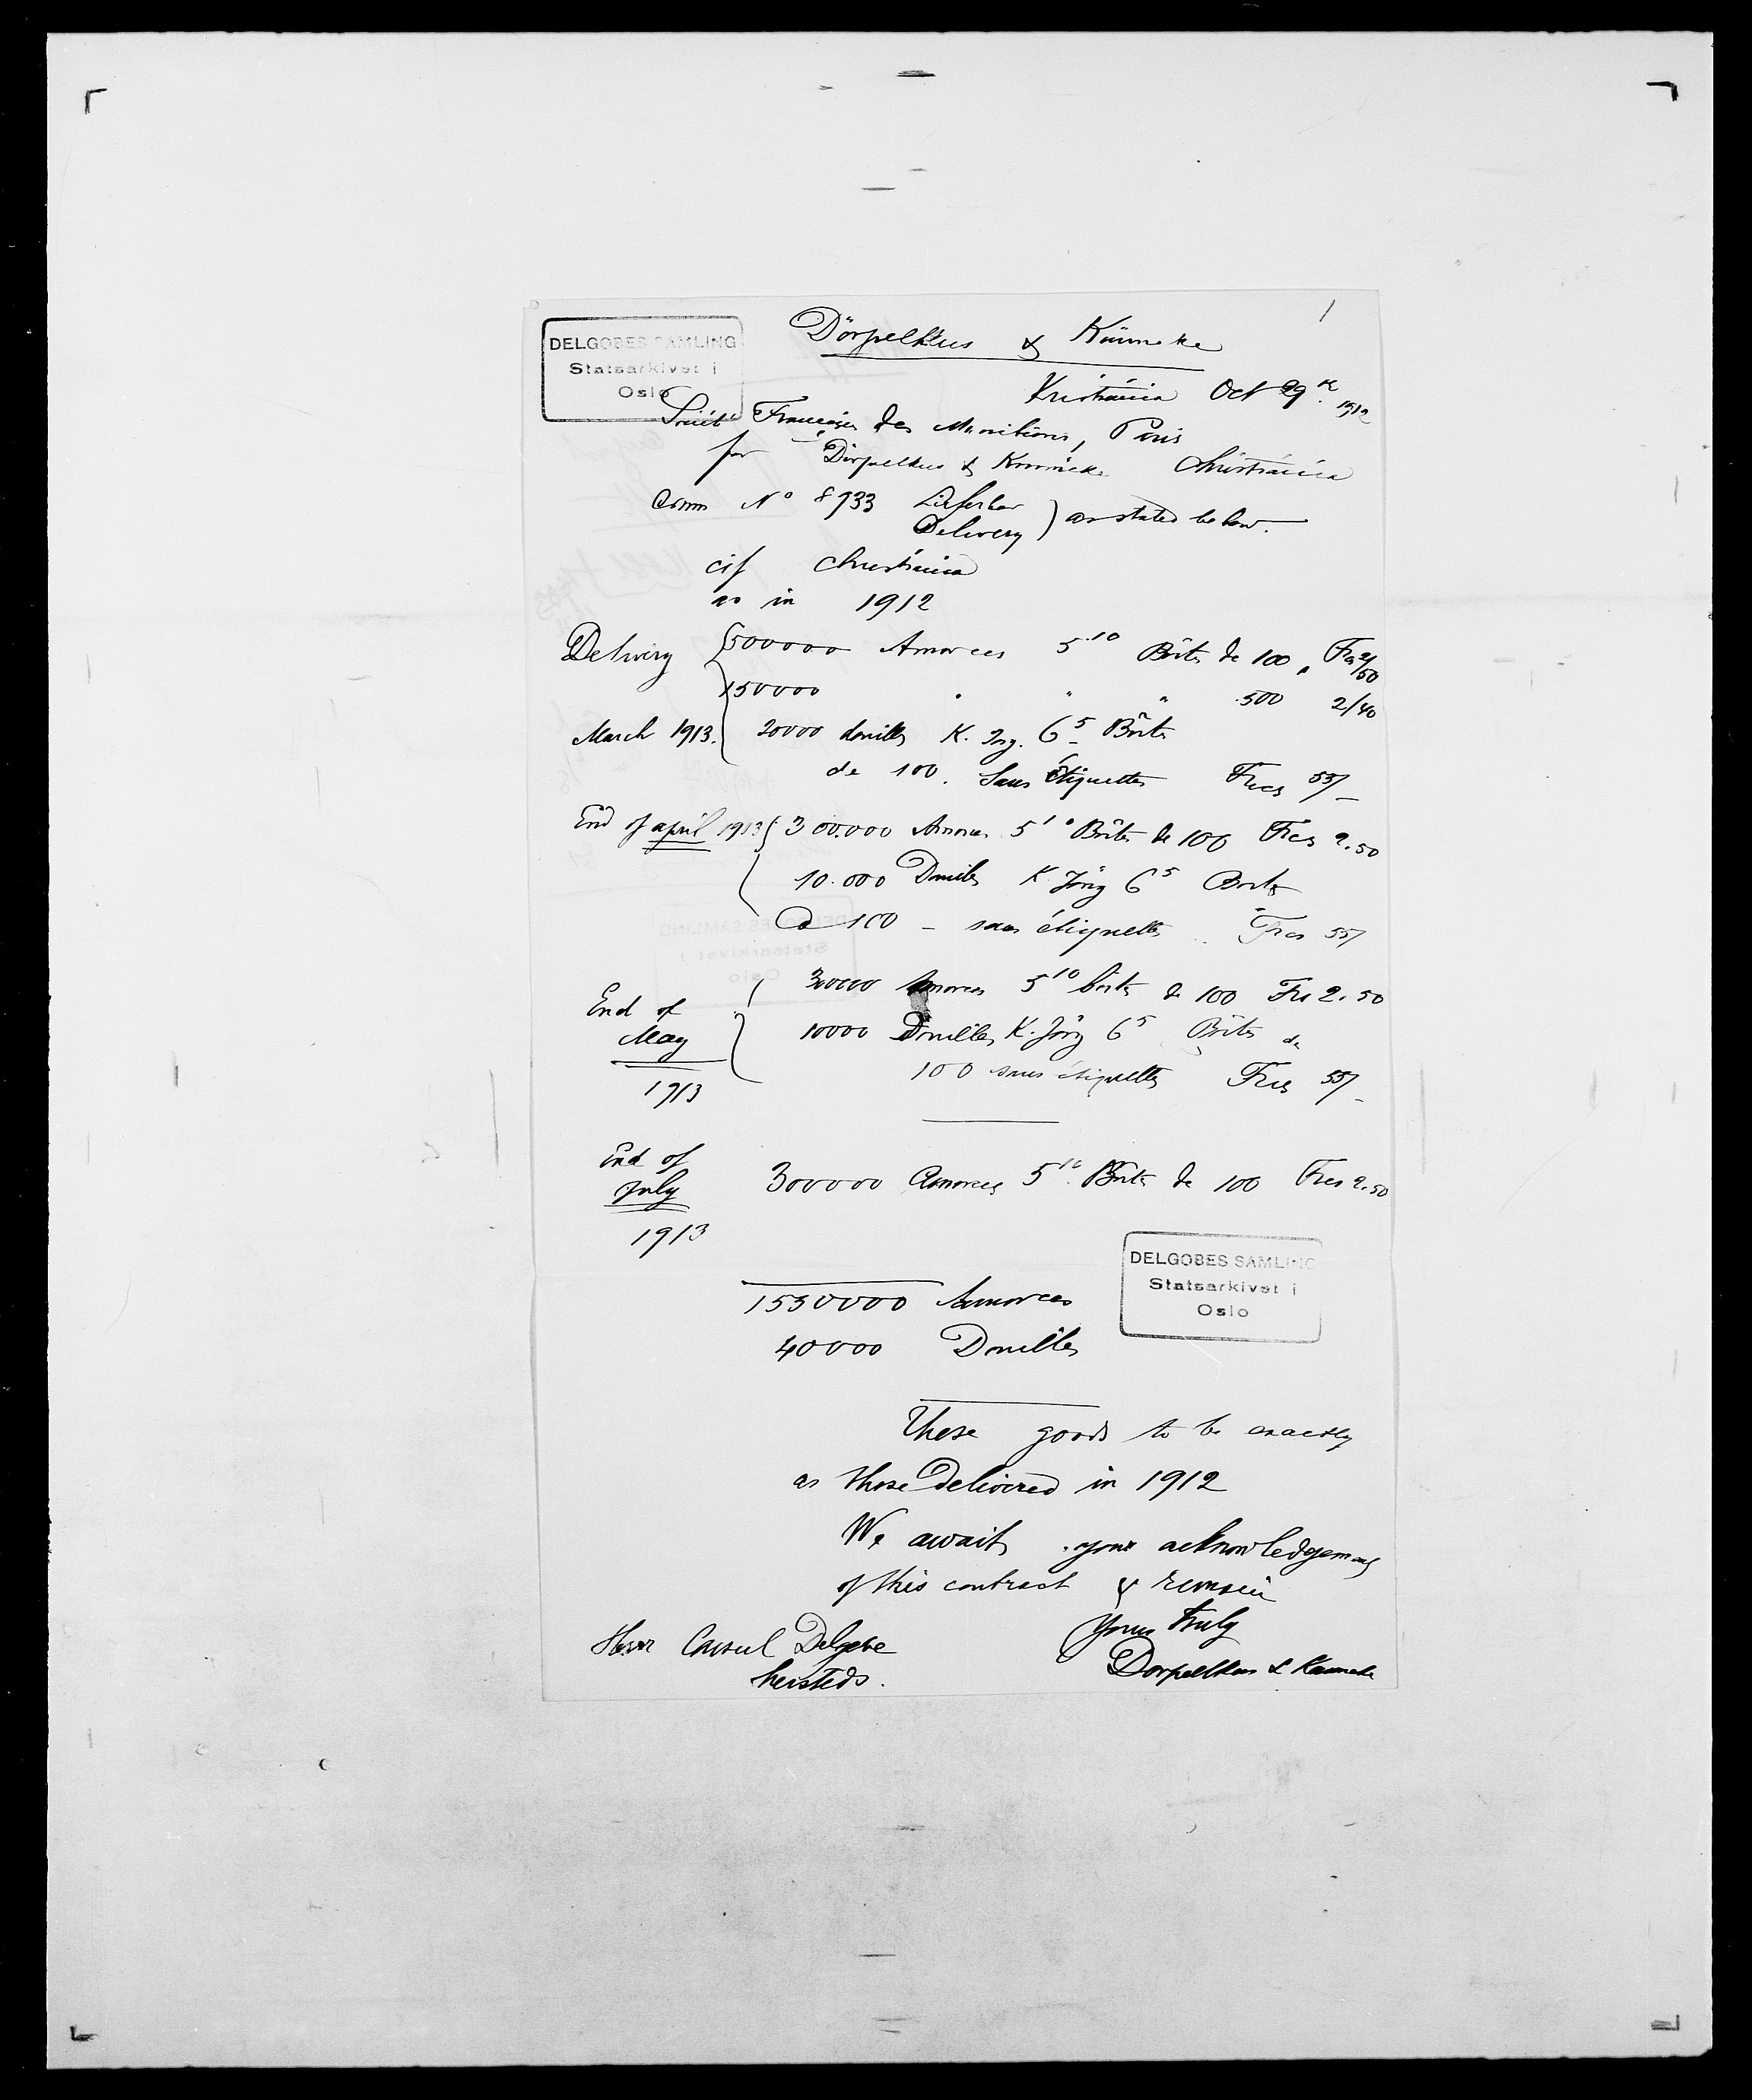 1
DELGOBES SAMLING
Statsarkivet i
Oslo
Dörpelkus & Künneke
Kristiania Oct 29th 1912
Société Française des Munitions, Paris
for Dörpelkus & Künneke Christiania
Comm No 8933 Lieferbar
Delivery ) as stated below.
cif Christiania
as in 1912
Delivery { 500000 Amorces 5.10 Boîtes de 100, Frs 2/50
150000 " " " 500 2/40
March 1913. 20000 douilles K. Jörg. 6 5 Boîtes
de 100. Sans étiquettes Frcs 55/-
End of april 1913 { 300.000 Amorces 5 10 Boîtes de 100 Frcs 2.50
10.000 Douilles K. Jörg 6 5 Boîtes
à 100 - sans étiquettes Frcs 55/
End of 300000 Amorces 5 10 boîtes de 100 Frs 2.50
May 10000 Douilles K. Jörg 6 5 Boîtes de
1913 100 sans étiquettes Frcs 55/-
End of
July 300000 Amorces 5 10 Boîtes de 100 Frcs 2.50
1913
DELGOBES SAMLING
Statsarkivet i
Oslo
1550000 Amorces
40000 Douilles
These goods to be exactly
as those Delivered in 1912
We await your acknowledgement
of this contract & remain
Yours truly
Herr Consul Delgobe
hersteds.
Dorpelkus & Künneke